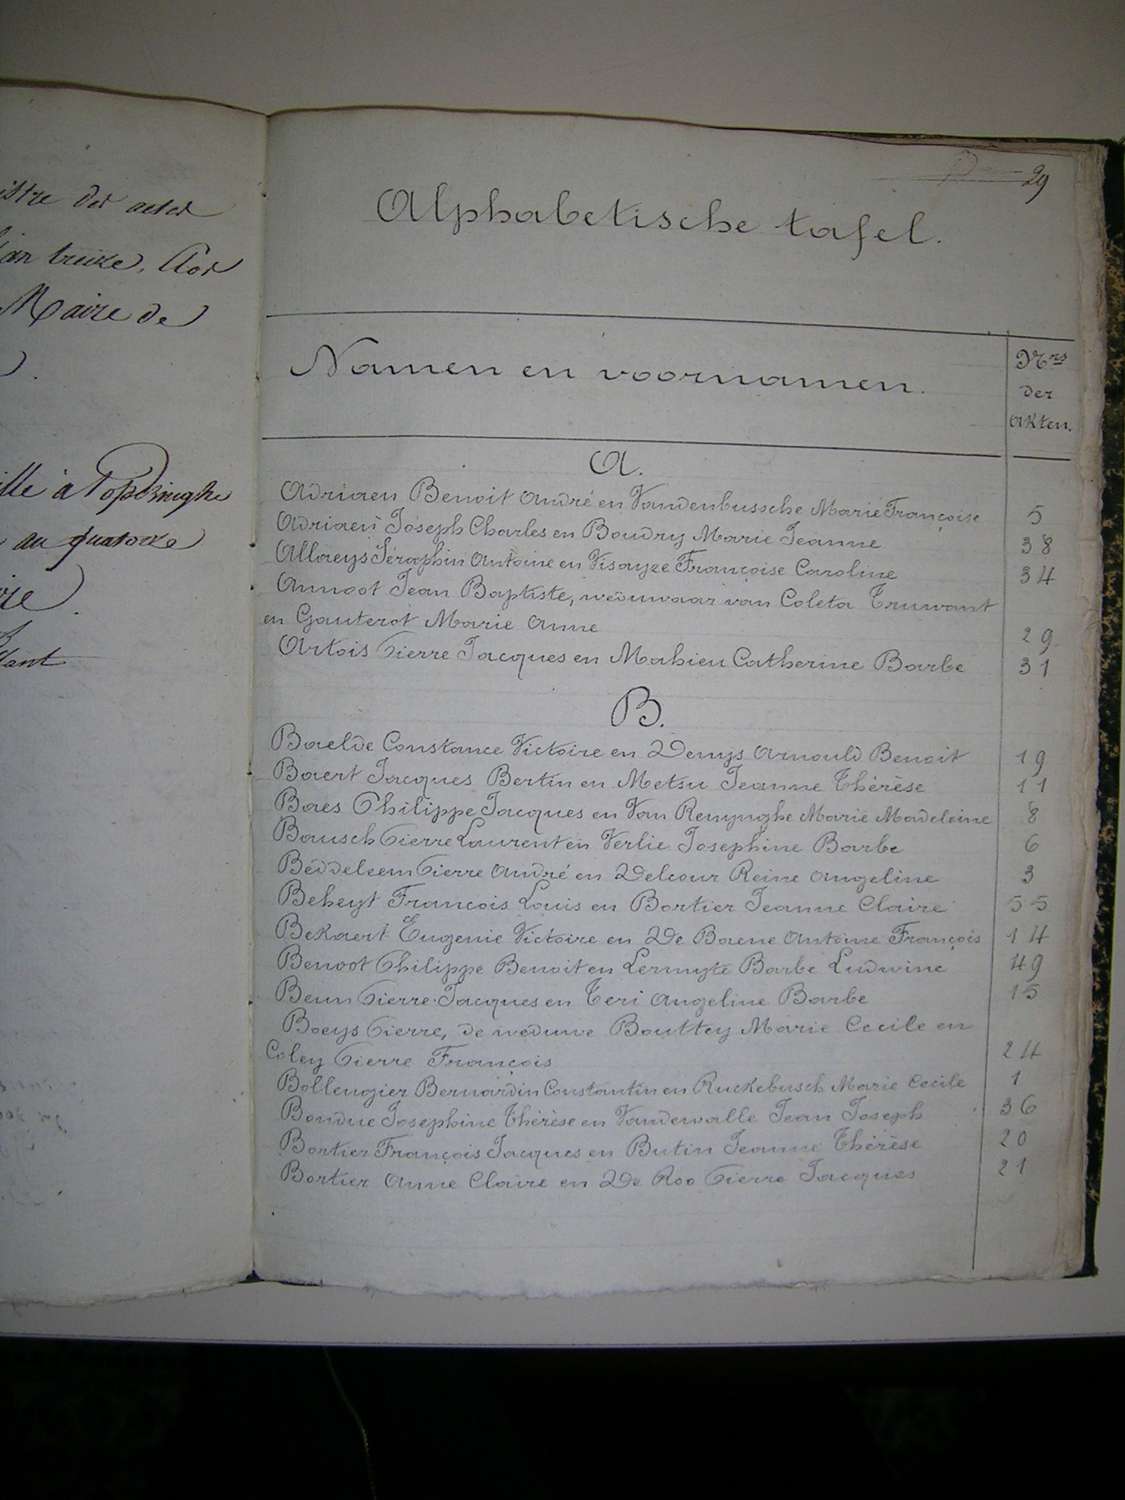 istre des actes
l'an treize, clos
Maire de
ille à Poperinghe
au quatorze
29
Alphabetische tafel.
Namen en voornamen.
Nrs
der
akten.
A.
Adriaen Benoit André en Vandenbussche Marie Françoise 5
Adriaen Joseph Charles en Boudry Marie Jeanne 38
Allaeys Séraphin Antoine en Visayze Françoise Caroline 34
Annoot Jean Baptiste, weduwaar van Coleta Truwant
en Gauterot Marie Anne 29
Artois Pierre Jacques en Mahieu Catherine Barbe 31
B.
Baelde Constance Victoire en Denys Arnould Benoit 19
Baert Jacques Bertin en Metsu Jeanne Thérèse 11
Baes Philippe Jacques en Van Renynghe Marie Madeleine 8
Bausch Pierre Laurent en Verlie Josephine Barbe 6
Beddeleem Pierre André en Delcour Reine Angeline 3
Beheyt François Louis en Bortier Jeanne Claire 55
Bekaert Eugenie Victoire en De Baene Antoine François 14
Benoot Philippe Benoit en Lermyte Barbe Ludwine 49
Beun Pierre Jacques en Teri Angeline Barbe 15
Boeys Pierre, de weduwe Bouttey Marie Cecile en
Coley Pierre François 24
Bollengier Bernardin Constantin en Ruckebusch Marie Cecile 1
Bondue Josephine Thérèse en Vandewalle Jean Joseph 36
Bortier François Jacques en Butin Jeanne Thérèse 20
Bortier Anne Claire en De Roo Pierre Jacques 21